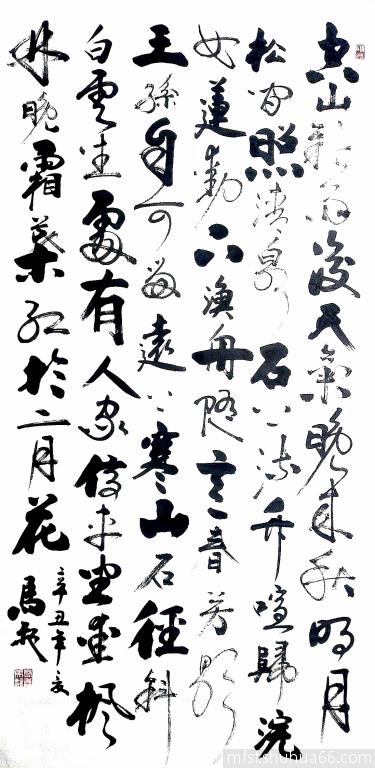 空山新雨後天氣晚來秋明月
松間照清泉石上流竹喧歸浣
女蓮動下漁舟隨意春芳歇
王孫自可留遠上寒山石徑斜
白雲生處有人家停車坐愛楓
林晚霜葉紅於二月花
辛丑年夏
馬
mfsf.shuhua66.com